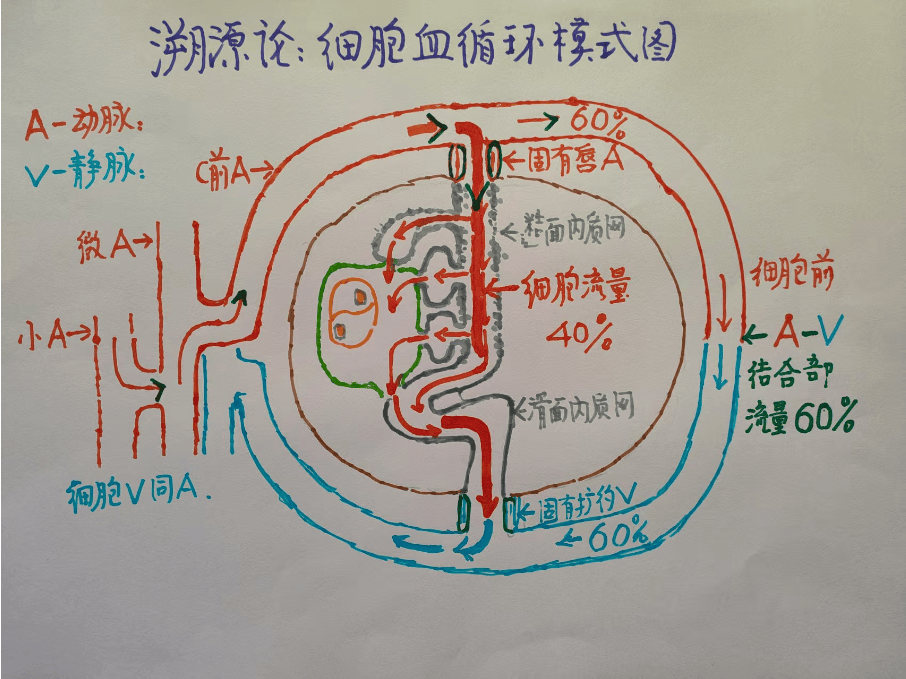 溯源论：细胞血循环模式图
A-动脉：
V-静脉：
C前A→
→60%
←固有唇A
←粗面内质网
微A→
小A→
←细胞流量
40%
细胞前
←A-V
结合部
流量60%
←滑面内质网
细胞V同A.
←固有括约V
←60%